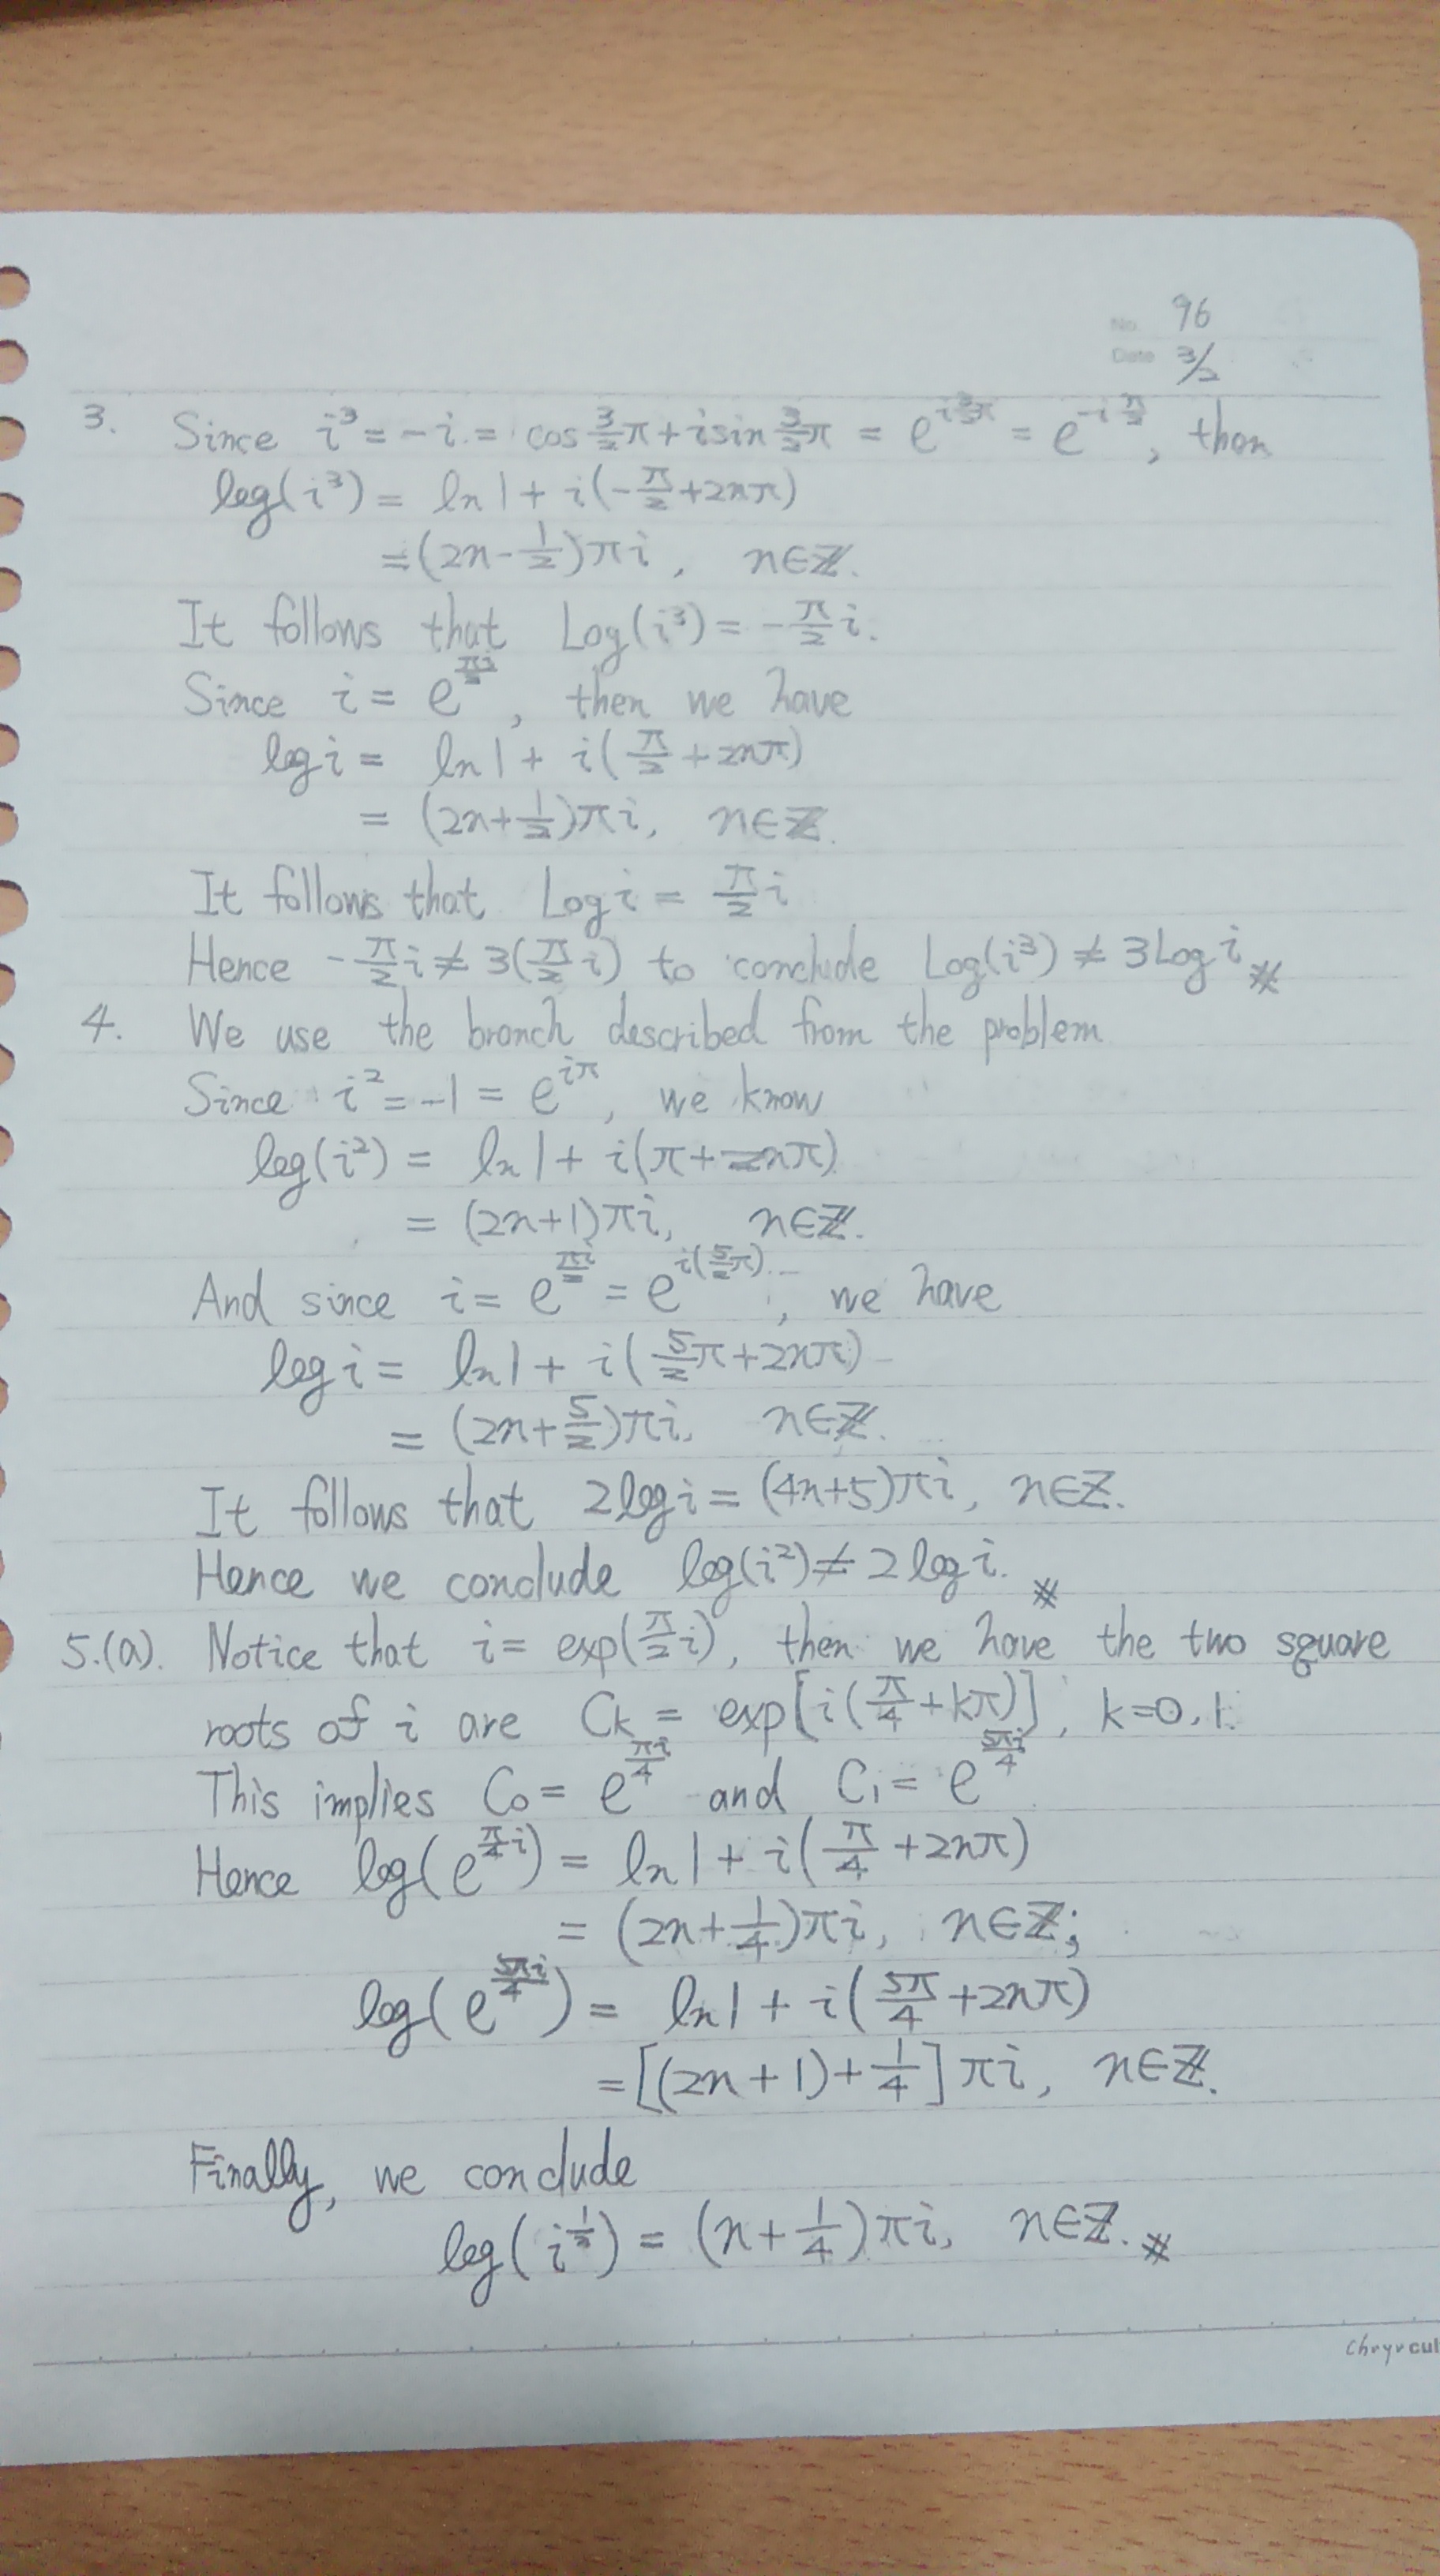 No. 96
Date 3/2
3. Since i³ = -i = cos 3/2 π + i sin 3/2 π = e^(i 3/2 π) = e^(-i π/2), then
log(i³) = ln 1 + i(-π/2 + 2nπ)
= (2n - 1/2)πi, n∈ℤ.
It follows that Log(i³) = -π/2 i.
Since i = e^(πi/2), then we have
log i = ln 1 + i(π/2 + 2nπ)
= (2n + 1/2)πi, n∈ℤ.
It follows that Log i = π/2 i
Hence -π/2 i ≠ 3(π/2 i) to conclude Log(i³) ≠ 3Log i ※
4. We use the branch described from the problem
Since i² = -1 = e^(iπ), we know
log(i²) = ln 1 + i(π + 2nπ)
= (2n+1)πi, n∈ℤ.
And since i = e^(πi/2) = e^(i(5/2 π)), we have
log i = ln 1 + i(5/2 π + 2nπ)
= (2n + 5/2)πi, n∈ℤ.
It follows that 2log i = (4n+5)πi, n∈ℤ.
Hence we conclude log(i²) ≠ 2 log i. ※
5.(a). Notice that i = exp(π/2 i), then we have the two square
roots of i are Ck = exp[i(π/4 + kπ)], k=0,1.
This implies C₀ = e^(πi/4) and C₁ = e^(5πi/4).
Hence log(e^(π/4 i)) = ln 1 + i(π/4 + 2nπ)
= (2n + 1/4)πi, n∈ℤ;
log(e^(5πi/4)) = ln 1 + i(5π/4 + 2nπ)
= [(2n+1) + 1/4]πi, n∈ℤ.
Finally, we conclude
log(i^(1/2)) = (n + 1/4)πi, n∈ℤ. ※